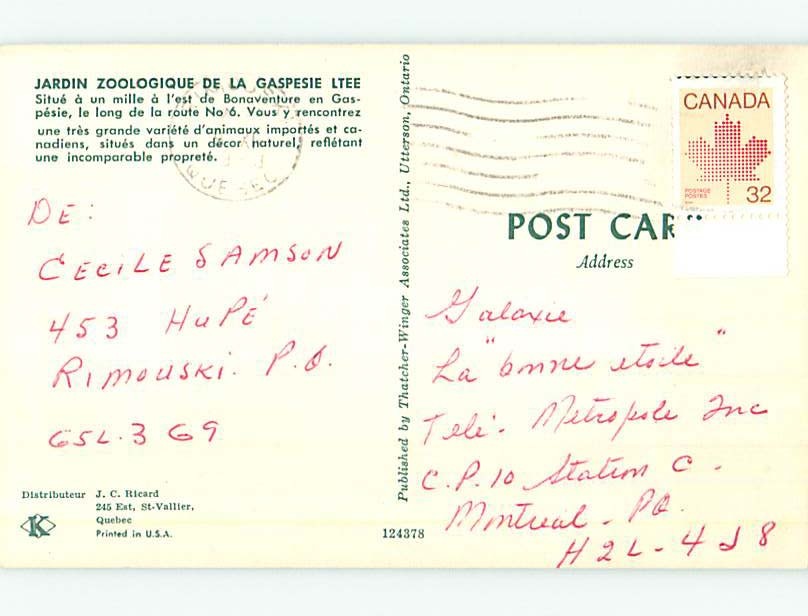 JARDIN ZOOLOGIQUE DE LA GASPESIE LTEE
Situé à un mille à l'est de Bonaventure en Gas-
pésie, le long de la route No 6. Vous y rencontrez
une très grande variété d'animaux importés et ca-
nadiens, situés dans un décor naturel, reflétant
une incomparable propreté.
DE:
CECILE SAMSON
453 HUPÉ
RIMOUSKI. P.Q.
G5L.3G9
Distributeur J. C. Ricard
245 Est, St-Vallier,
Quebec
Printed in U.S.A.
K
QUEBEC
Published by Thatcher-Winger Associates Ltd., Utterson, Ontario
124378
CANADA
POSTAGE
POSTES
32
POST CAR
Address
Galaxie
La "bonne etoile"
Télé. Métropole Inc
C.P. 10 Station C.
Montreal. PQ.
H2L-4J8